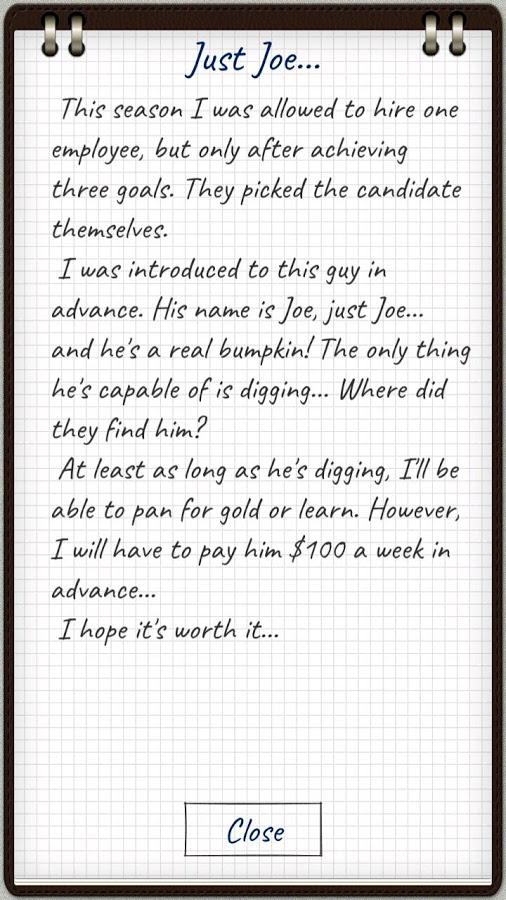 Just Joe...
This season I was allowed to hire one
employee, but only after achieving
three goals. They picked the candidate
themselves.
I was introduced to this guy in
advance. His name is Joe, just Joe...
and he's a real bumpkin! The only thing
he's capable of is digging... Where did
they find him?
At least as long as he's digging, I'll be
able to pan for gold or learn. However,
I will have to pay him $100 a week in
advance...
I hope it's worth it...
Close